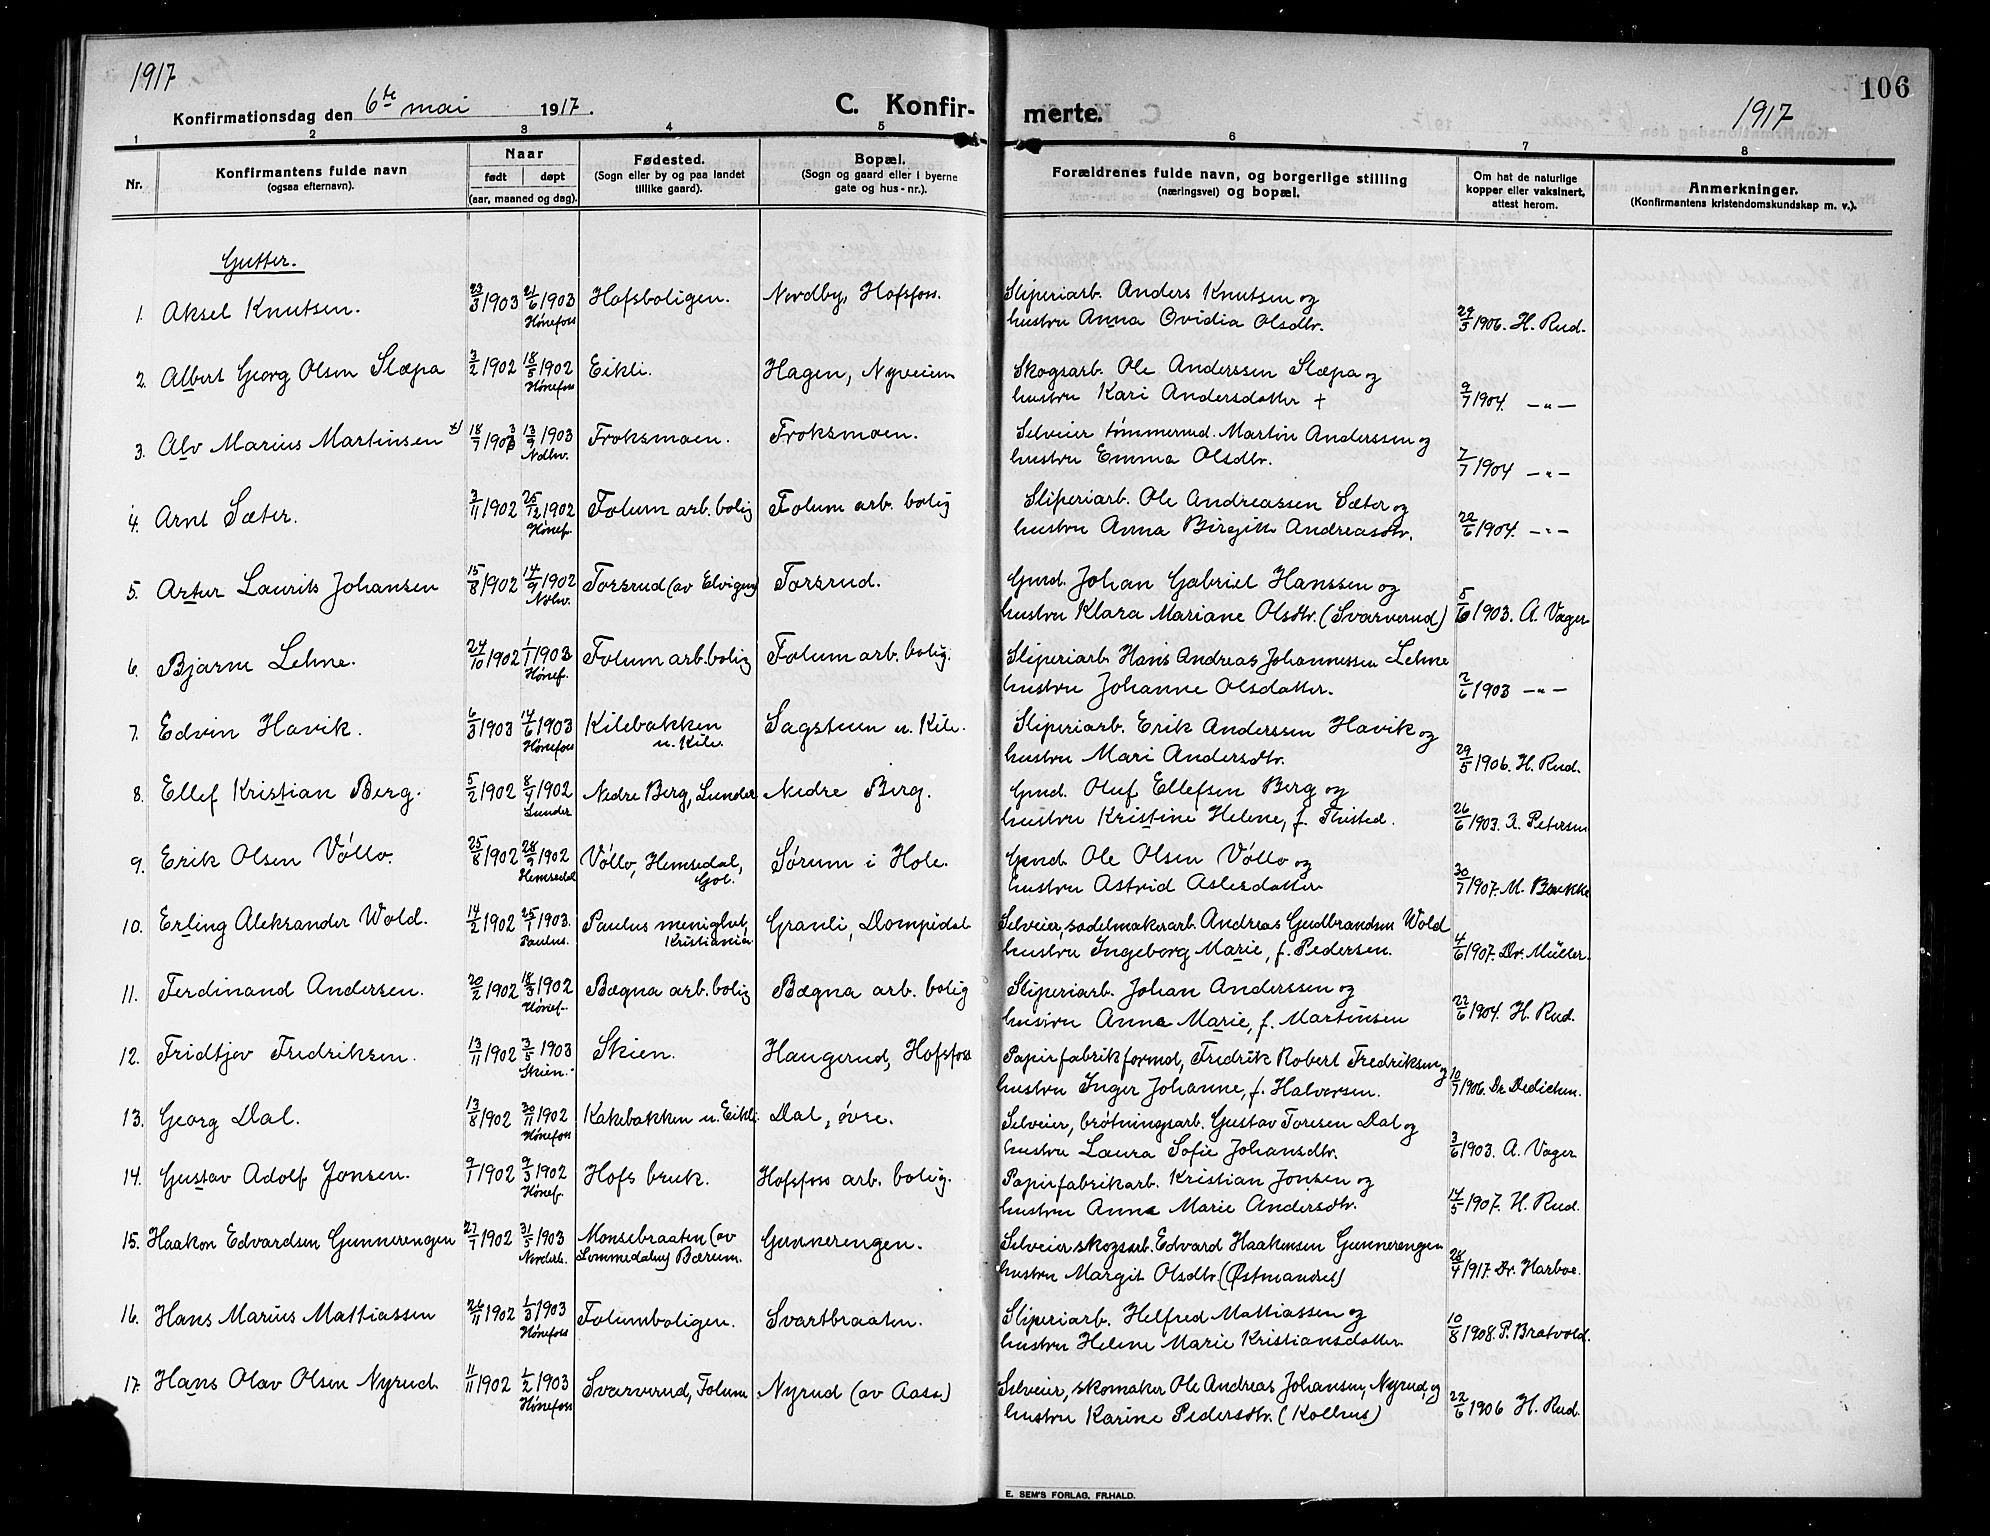 1917
Konfirmationsdag den 6te mai 1917.
C. Konfirmerte.
106
1917
1 2 3 4 5 6 7 8
Nr. Konfirmantens fulde navn (ogsaa efternavn). Naar født døpt (aar, maaned og dag). Fødested. (Sogn eller by og paa landet tillike gaard). Bopæl. (Sogn og gaard eller i byerne gate og hus-nr.). Forældrenes fulde navn, og borgerlige stilling (næringsvei) og bopæl. Om hat de naturlige kopper eller vaksinert, attest herom. Anmerkninger. (Konfirmantens kristendomskundskap m. v.).
Gutter.
1. Aksel Knutsen. 23/3 1903 21/6 1903 Hønefoss Hofsboligen. Nordby, Hofsfoss. Sliperiarb. Anders Knutsen og
hustru Anna Ovidia Olsdtr. 29/5 1906. H. Rud.
2. Albert Georg Olsen Slæpa 3/2 1902 18/5 1902 Hønefoss Eikli. Hagen, Nyveien Skogsarb. Ole Anderssen Slæpa og
hustru Kari Andersdatter + 9/7 1904. —"—
3. Alv Marius Martinsen x) 18/7 1903 13/9 1903 Ndhv. Froksmoen. Froksmoen. Selveier tømmermd. Martin Anderssen og
hustru Emma Olsdtr. 7/7 1904 —"—
4. Arnt Sæter. 3/11 1902 25/12 1902 Hønef. Folum arb. bolig Folum arb. bolig Sliperiarb. Ole Andreassen Sæter og
hustru Anna Birgitte Andreasdtr. 22/6 1904. —"—
5. Artur Laurits Johansen 15/8 1902 14/9 1902 Ndhv. Torsrud (av Elvigen) Torsrud. Gmd. Johan Gabriel Hanssen og
hustru Klara Mariane Olsdtr. (Svarverud) 5/6 1903. A. Vager
6. Bjarne Lehne. 24/10 1902 1/1 1903 Hønef. Folum arb. bolig Folum arb. bolig. Sliperiarb. Hans Andreas Johannessen Lehne
hustru Johanne Olsdatter. 2/6 1903 —"—
7. Edvin Havik. 6/3 1903 14/6 1903 Hønefoss Kilebakken u. Kile. Sagstuen u. Kile. Sliperiarb. Erik Anderssen Havik og
hustru Mari Andersdtr. 29/5 1906. H. Rud.
8. Ellef Kristian Berg. 5/2 1902 8/4 1902 Lunder Nedre Berg, Lunder Nedre Berg. Gmd. Oluf Ellefsen Berg og
hustru Kristine Helene, f. Thisted. 26/6 1903. R. Petersen
9. Erik Olsen Vøllo. 25/8 1902 28/9 1902 Hemsedal Vøllo, Hemsedal, Gol. Sørum i Hole. Gmd. Ole Olsen Vøllo og
hustru Astrid Aslesdatter 30/7 1907. M. Bakke
10. Erling Aleksander Wold. 14/2 1902 25/1 1903. Paulus. Paulus menighet, Kristiania Granli, Dompidal Selveier, sadelmakerarb. Andreas Gudbrandsen Wold
hustru Ingeborg Marie, f. Pedersen. 4/6 1907. Dr. Müller.
11. Ferdinand Andersen. 20/2 1902 18/5 1902 Hønef. Bægna arb. bolig Bægna arb. bolig Sliperiarb. Johan Anderssen og
hustru Anna Marie, f. Martinsen 22/6 1904. H. Rud.
12. Fridtjov Fredriksen. 13/11 1902 3/5 1903 Skien. Skien. Haugerud, Hofsfoss Papirfabrikformd, Fredrik Robert Fredriksen og
hustru Inger Johanne, f. Halvorsen. 10/7 1906. Dr. Dedichen.
13. Georg Dal. 13/8 1902 30/11 1902 Hønefoss Kakebakken u. Eikli Dal, øvre. Selveier, brøtningsarb. Gustav Toresen Dal og
hustru Laura Sofie Johansdtr. 3/6 1903. A. Vager
14. Gustav Adolf Jonsen. 9/1 1902 9/3 1902 Hønef. Hofs bruk. Hofsfoss arb. bolig. Papirfabrikarb. Kristian Jonsen og
hustru Anna Marie Andersdtr. 14/5 1907. H. Rud.
15. Haakon Edvardsen Gunnerengen 27/7 1902 31/5 1903 Norderh. Monsebraaten (av Lommedalen) Bærum. Gunnerengen. Selveier skogsarb. Edvard Haakensen Gunnerengen
hustru Margit Olsdtr. (Østmandset) 28/4 1917. Dr. Harboe.
16. Hans Marius Mattiassen 26/11 1902 1/3 1903 Hønefoss Folumboligen. Svartbraaten. Sliperiarb. Helfred Mattiassen og
hustru Helene Marie Kristiansdatter 10/8 1908. P. Bratvold.
17. Hans Olav Olsen Nyrud 11/11 1902 1/2 1903 Hønefoss Svarverud, Folum Nyrud (av Aasa) Selveier, skomaker Ole Andreas Johansen, Nyrud, og
hustru Karine Pedersdtr. (Kolhus) 22/6 1906 H. Rud.
E. SEM'S FORLAG, FR.HALD.